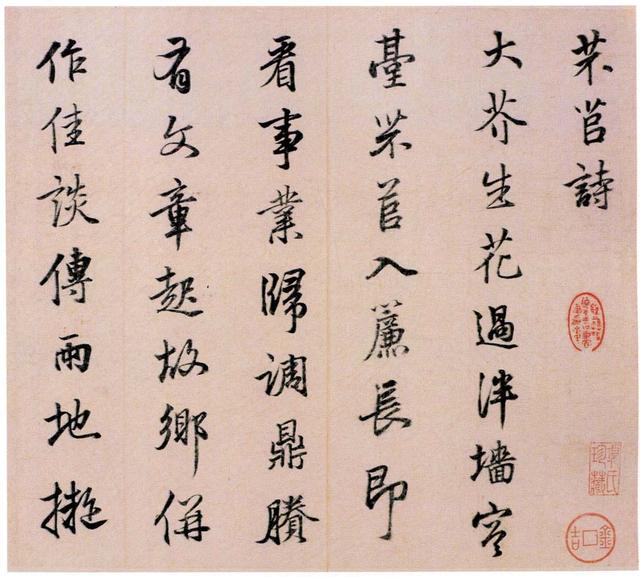 芣苢詩
大芥生花過泮墙
臺芣苢入簾長即
看事業歸調鼎賸
有文章起故鄉併
作佳談傳兩地擬